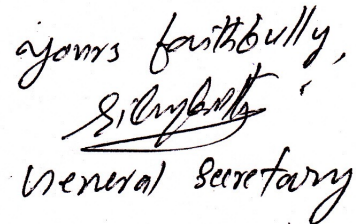 Yours faithfully,
General Secretary